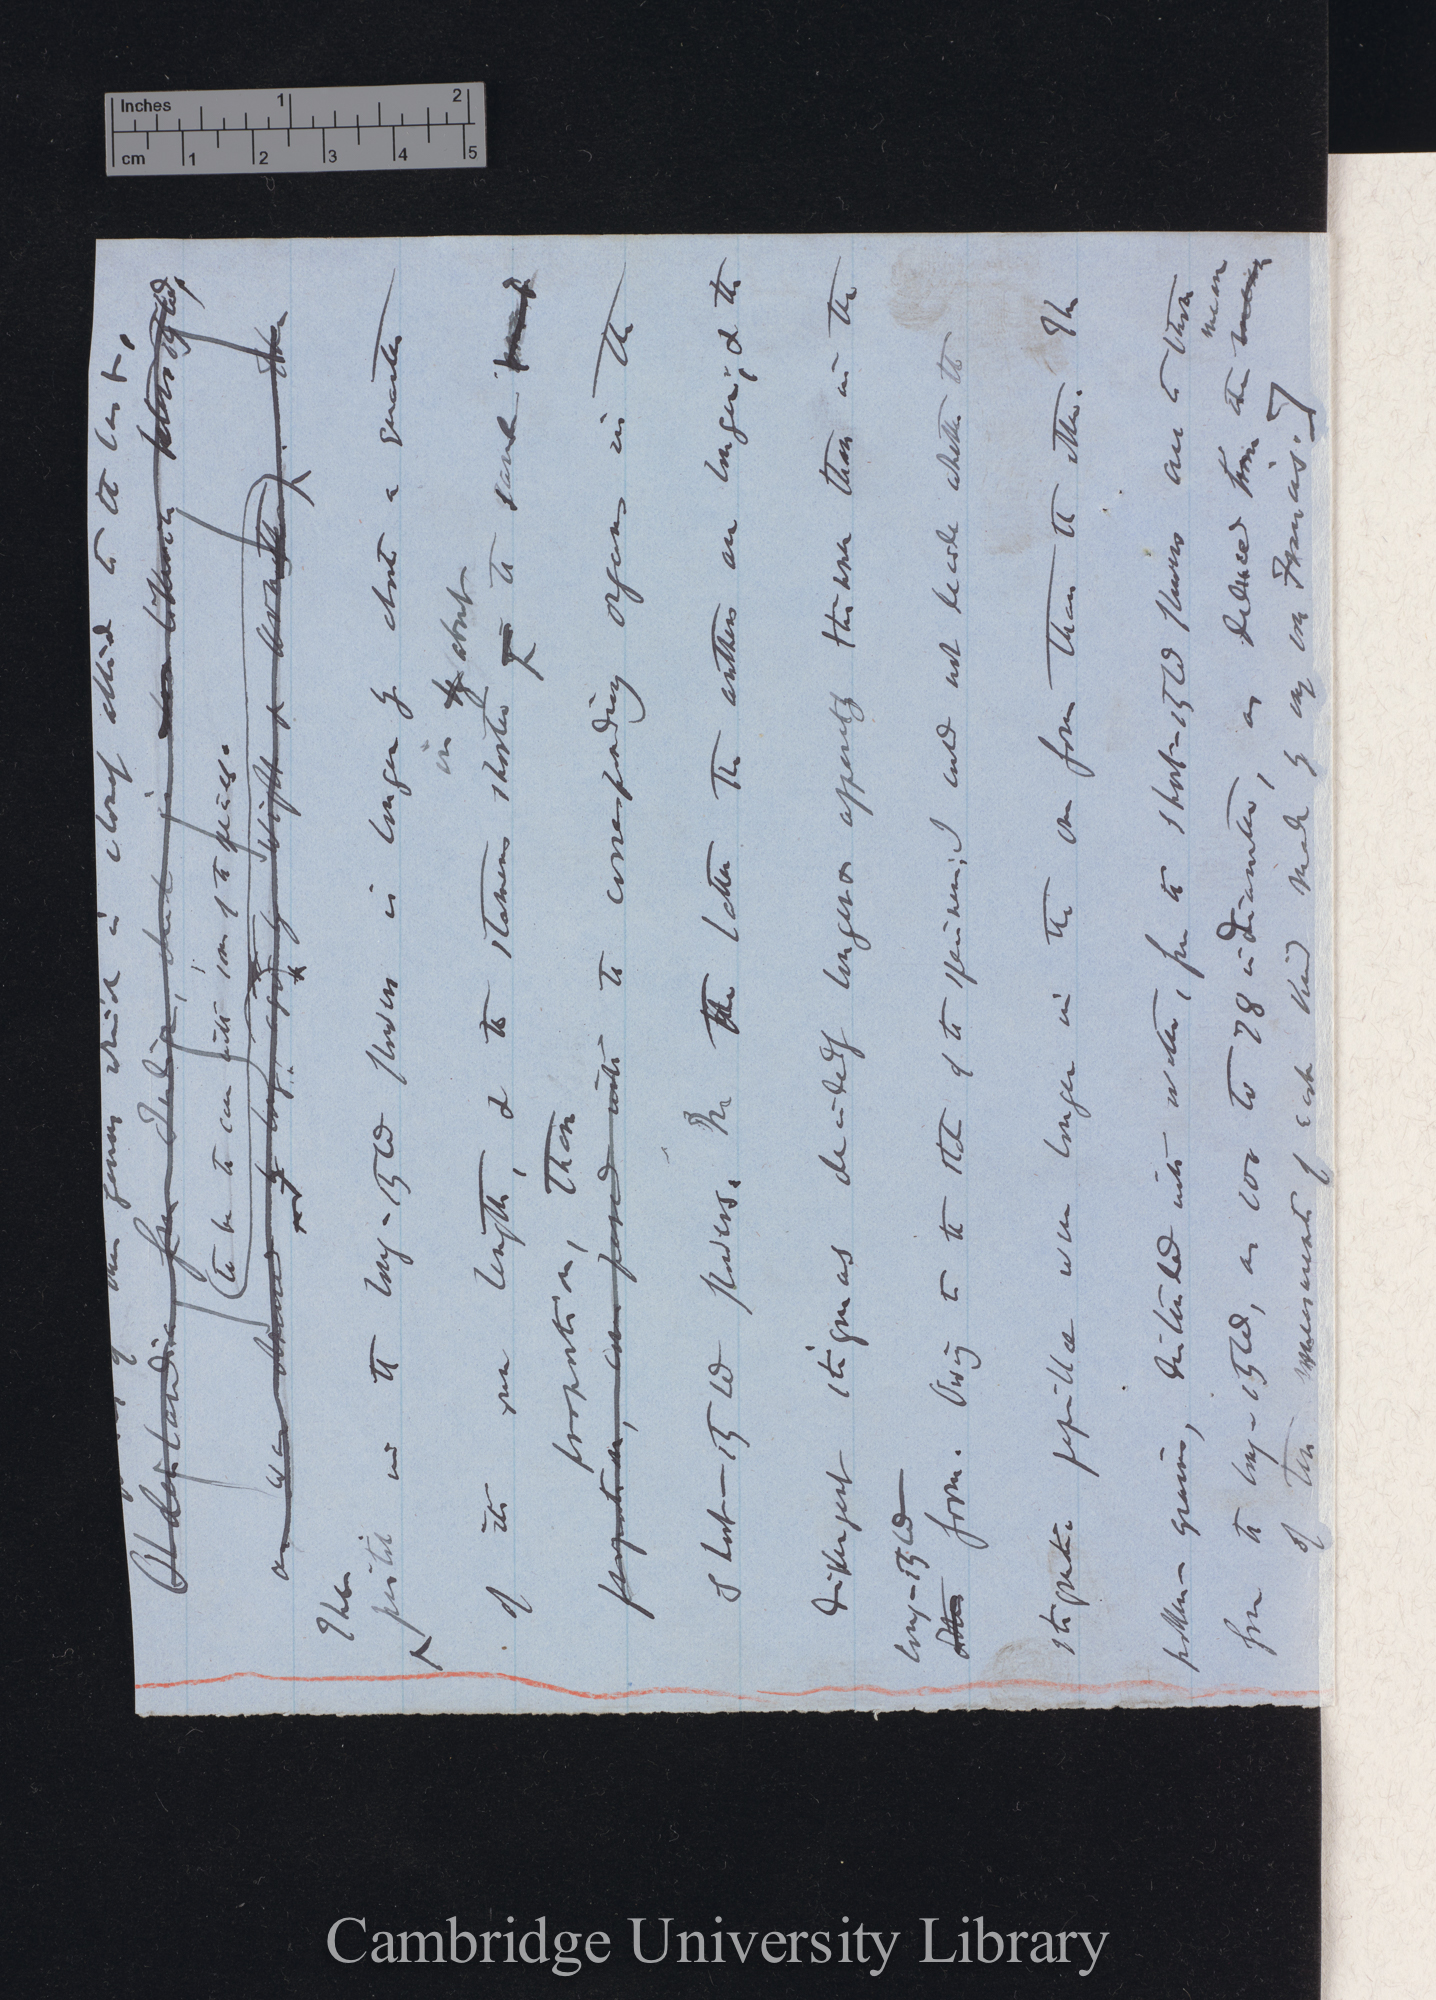 Inches 1 2
cm 1 2 3 4 5
genus which is closely allied to the last,
Oldenlandia from India, dried
(to be the case with some of the species.
Then
pistil in the long-styled flowers is longer by about a quarter
in by about
of its own length, & the stamens shorter in the same
proportion, than
proportion, compared with the corresponding organs in the
short-styled flowers. In the latter the anthers are longer; & the
divergent stigmas decidedly longer & apparently thinner than in the
long-styled
form. Owing to the state of the specimens, I could not decide whether the
stigmatic papillæ were longer in the one form than the other. The
pollen-grains, distended with water, from the short-styled flowers are to those
mean
from the long-styled, as 100 to 78 in diameter, as deduced from the
of ten measurements of each kind made by my son Francis.]
Cambridge University Library